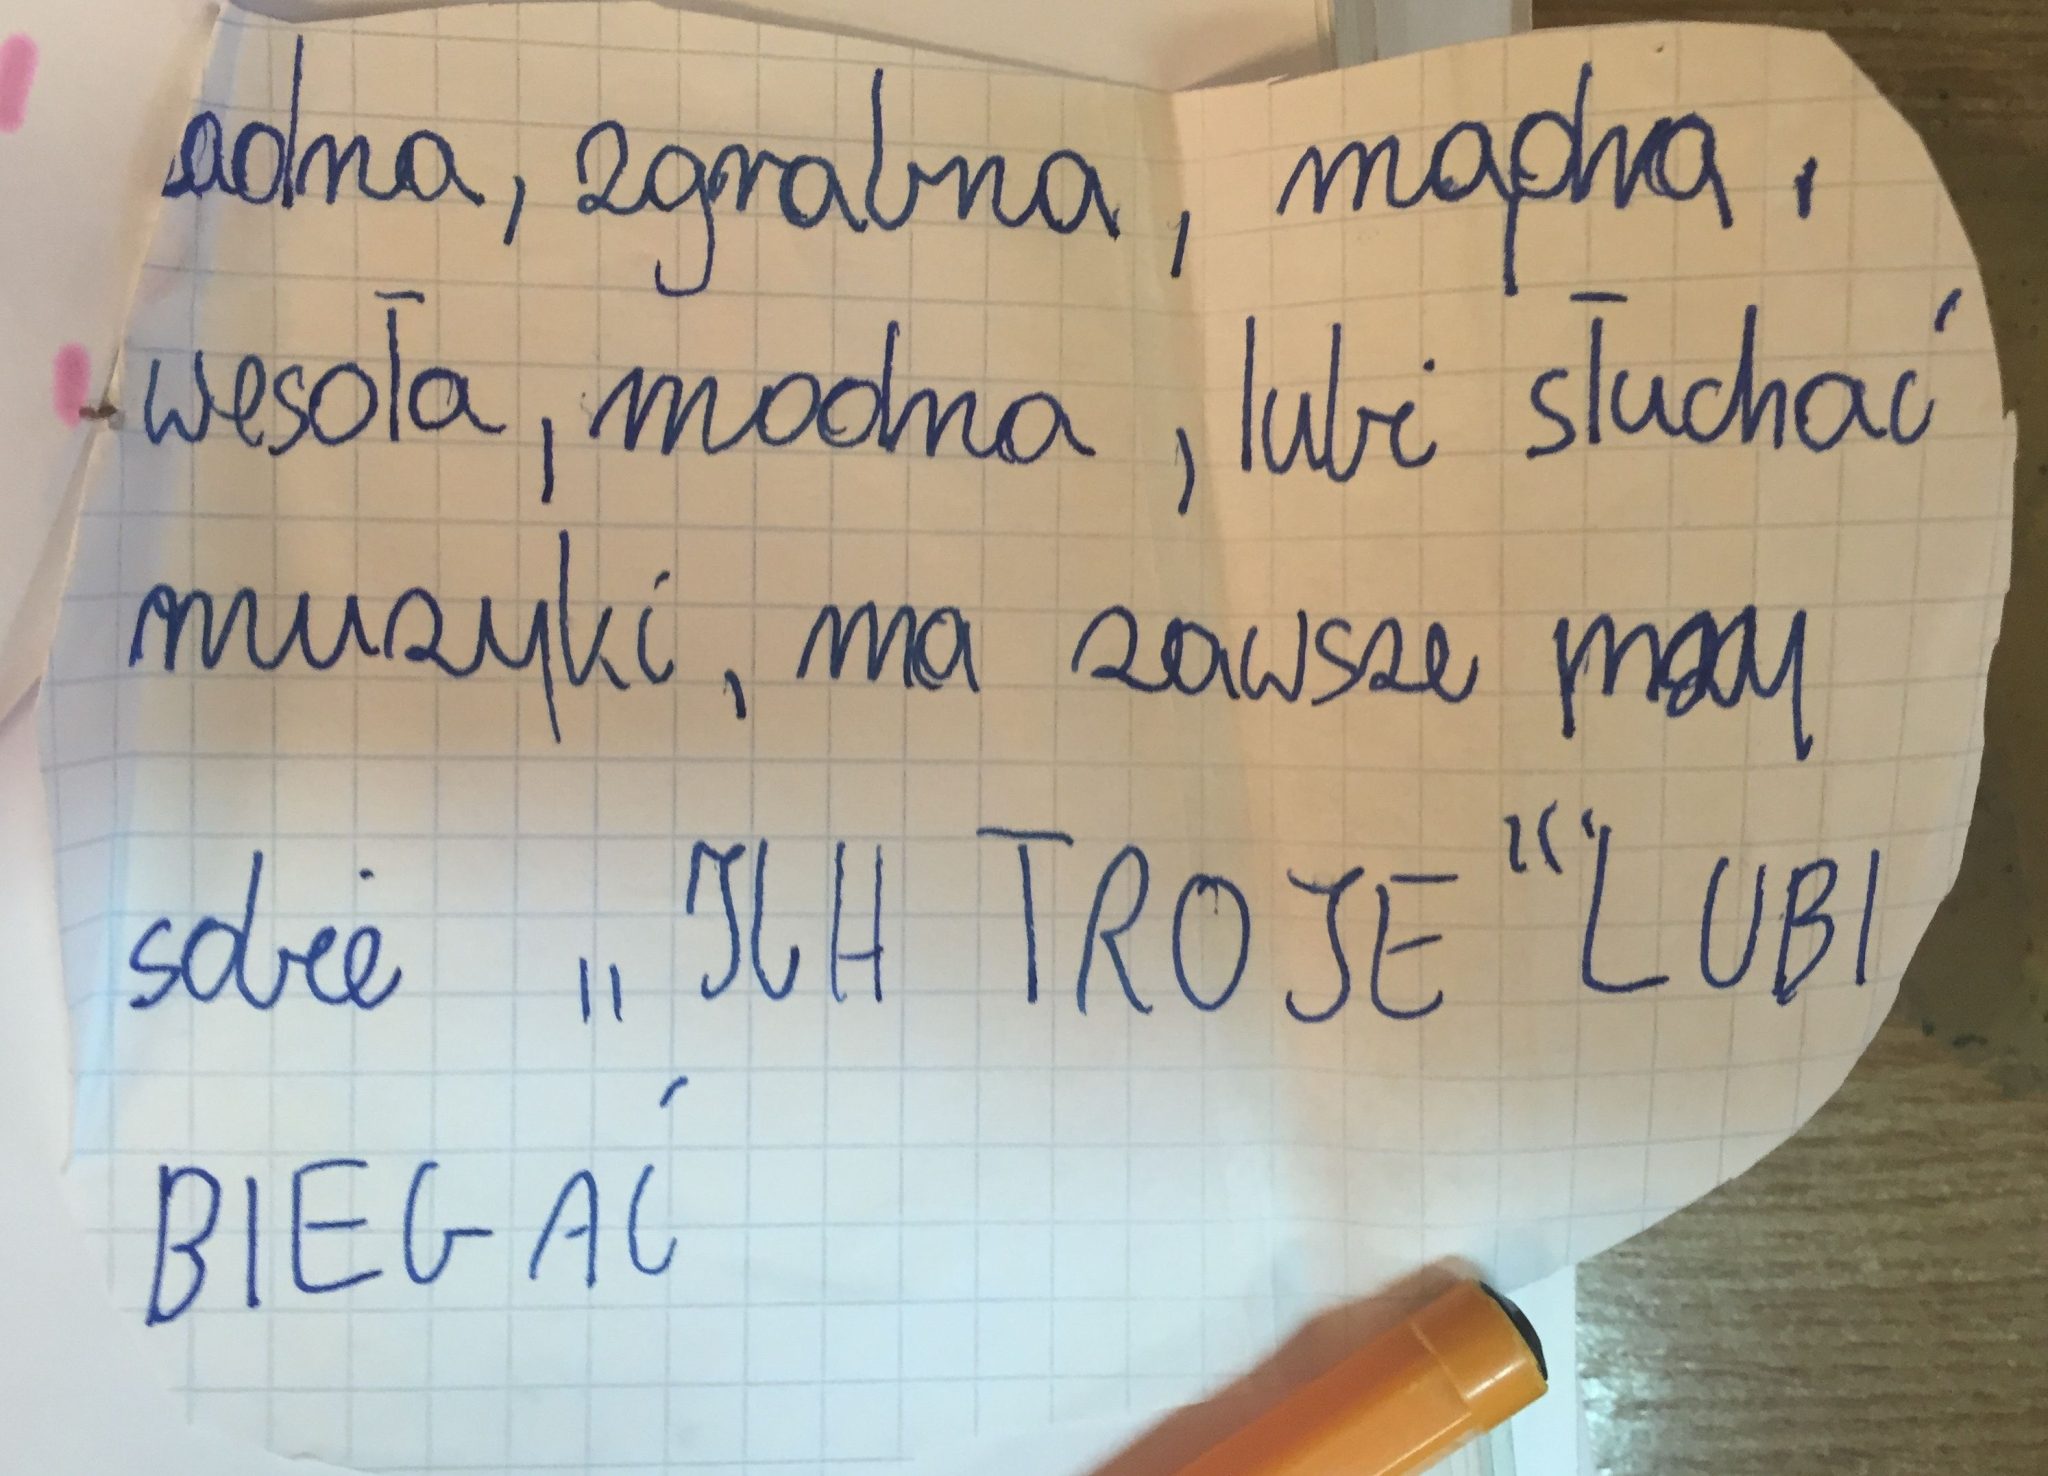 ładna, zgrabna, mądra,
wesoła, modna, lubi słuchać
muzyki, ma zawsze przy
sobie „ICH TROJE“ LUBI
BIEGAĆ